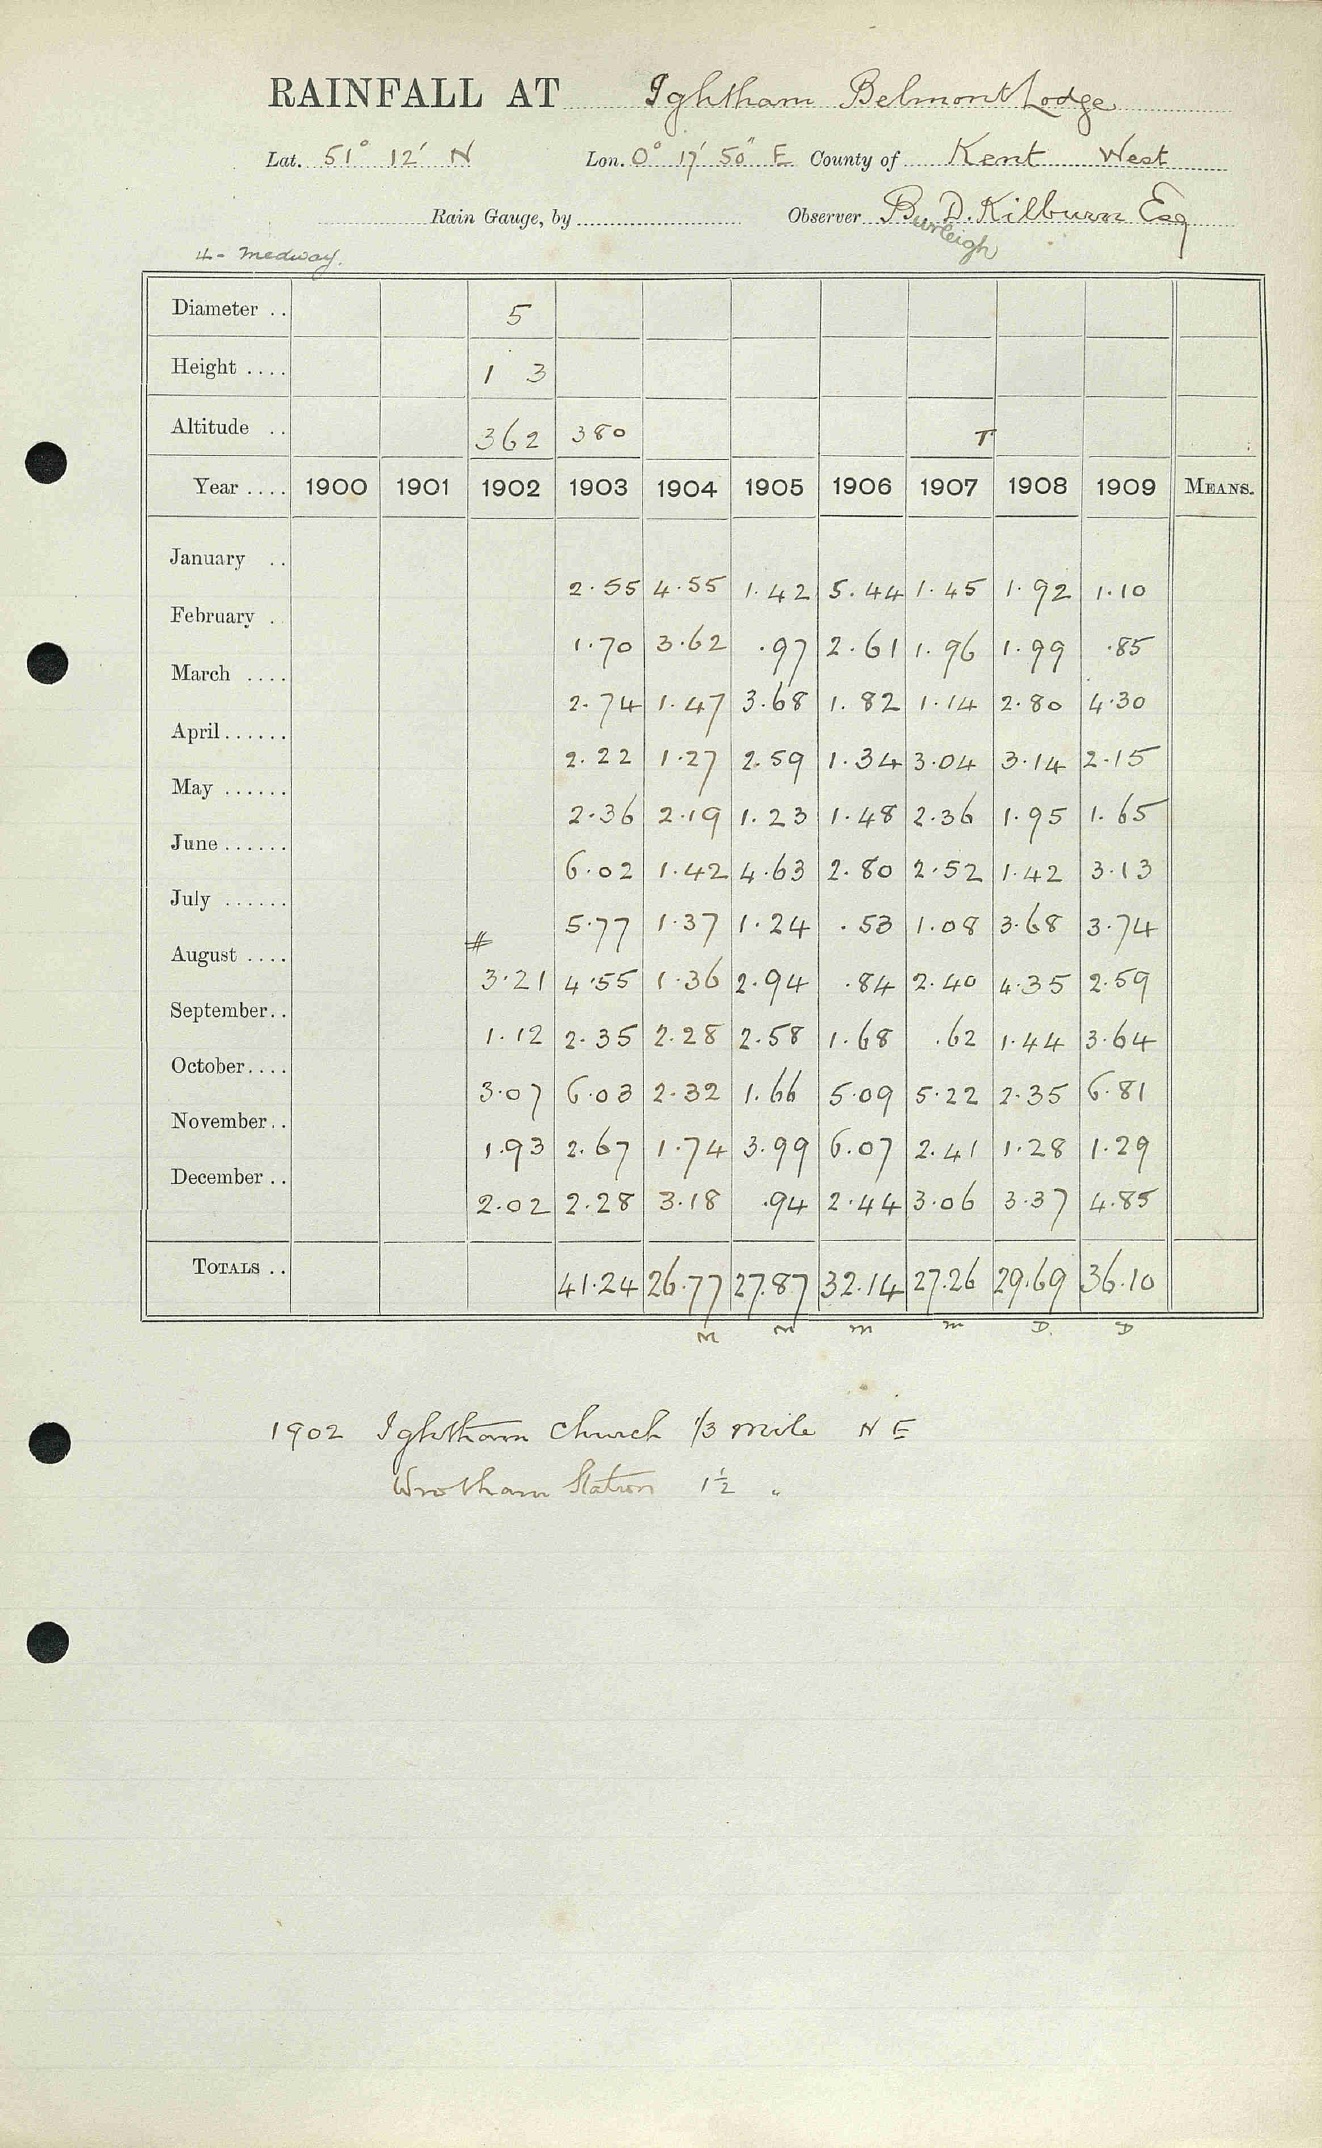 RAINFALL AT Ightham Belmont Lodge
Lat. 51° 12' N Lon. 0° 17' 50" E County of Kent West
Rain Gauge, by Observer B. D. Kilburn Esq
Burleigh
4 - Medway.
Diameter .. 5
Height .... 1 3
Altitude .. 362 380 T
Year .... 1900 1901 1902 1903 1904 1905 1906 1907 1908 1909 MEANS.
January .. 2.55 4.55 1.42 5.44 1.45 1.92 1.10
February . 1.70 3.62 .97 2.61 1.96 1.99 .85
March .... 2.74 1.47 3.68 1.82 1.14 2.80 4.30
April...... 2.22 1.27 2.59 1.34 3.04 3.14 2.15
May ...... 2.36 2.19 1.23 1.48 2.36 1.95 1.65
June ...... 6.02 1.42 4.63 2.80 2.52 1.42 3.13
July ...... 5.77 1.37 1.24 .53 1.08 3.68 3.74
August .... # 3.21 4.55 1.36 2.94 .84 2.40 4.35 2.59
September.. 1.12 2.35 2.28 2.58 1.68 .62 1.44 3.64
October.... 3.07 6.03 2.32 1.66 5.09 5.22 2.35 6.81
November.. 1.93 2.67 1.74 3.99 6.07 2.41 1.28 1.29
December .. 2.02 2.28 3.18 .94 2.44 3.06 3.37 4.85
TOTALS .. 41.24 26.77 27.87 32.14 27.26 29.69 36.10
M M M M D. D
1902 Ightham Church 1/3 mile N E
Wrotham Station 1½ "